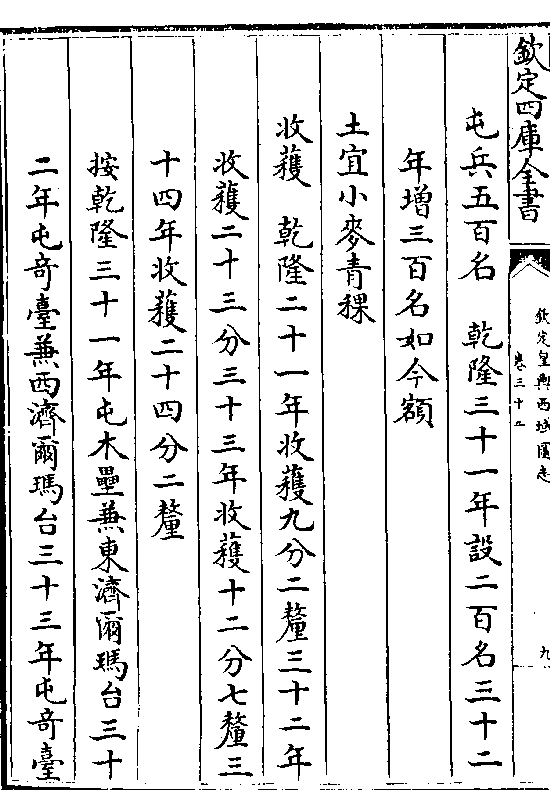 欽定四庫全書
欽定皇輿西域圖志
卷三十二
九
屯兵五百名　乾隆三十一年設二百名三十二
年增三百名如今額
土宜小麥青稞
收穫　乾隆二十一年收穫九分二釐三十二年
收穫二十三分三十三年收穫十二分七釐三
十四年收穫二十四分二釐
按乾隆三十一年屯木壘兼東濟爾瑪台三十
二年屯奇臺兼西濟爾瑪台三十三年屯奇臺